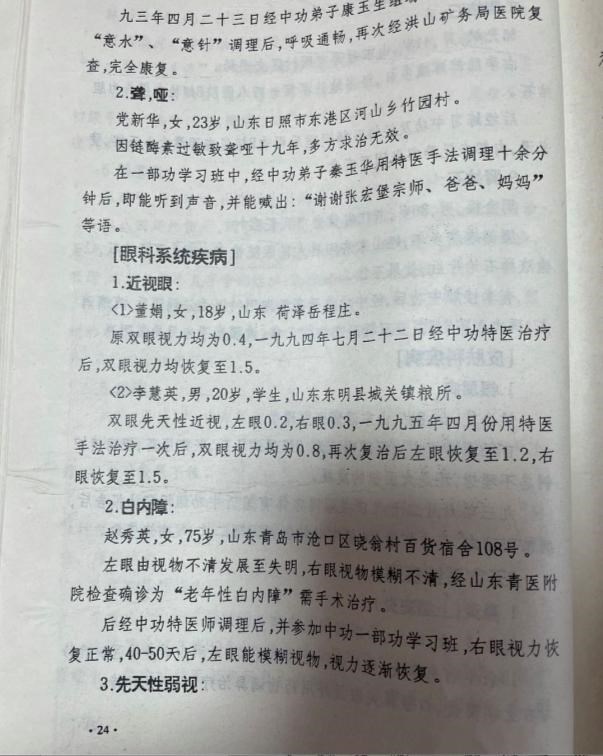 九三年四月二十三日经中功弟子康玉生组
“意水”、“意针”调理后,呼吸通畅,再次经洪山矿务局医院复
查,完全康复。
2.聋,哑:
党新华,女,23岁,山东日照市东港区河山乡竹园村。
因链酶素过敏致聋哑十九年,多方求治无效。
在一部功学习班中,经中功弟子秦玉华用特医手法调理十余分
钟后,即能听到声音,并能喊出:“谢谢张宏堡宗师、爸爸、妈妈”
等语。
[眼科系统疾病]
1.近视眼:
<1>董娟,女,18岁,山东 荷泽岳程庄。
原双眼视力均为0.4,一九九四年七月二十二日经中功特医治疗
后,双眼视力均恢复至1.5。
<2>李慧英,男,20岁,学生,山东东明县城关镇粮所。
双眼先天性近视,左眼0.2,右眼0.3,一九九五年四月份用特医
手法治疗一次后,双眼视力均为0.8,再次复治后左眼恢复至1.2,右
眼恢复至1.5。
2.白内障:
赵秀英,女,75岁,山东青岛市沧口区晓翁村百货宿舍108号。
左眼由视物不清发展至失明,右眼视物模糊不清,经山东青医附
院检查确诊为“老年性白内障”需手术治疗。
后经中功特医师调理后,并参加中功一部功学习班,右眼视力恢
复正常,40-50天后,左眼能模糊视物,视力逐渐恢复。
3.先天性弱视:
·24·